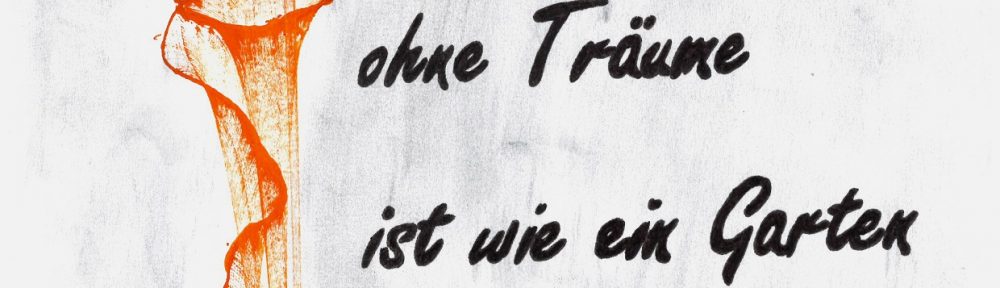 ohne Träume
ist wie ein Garten